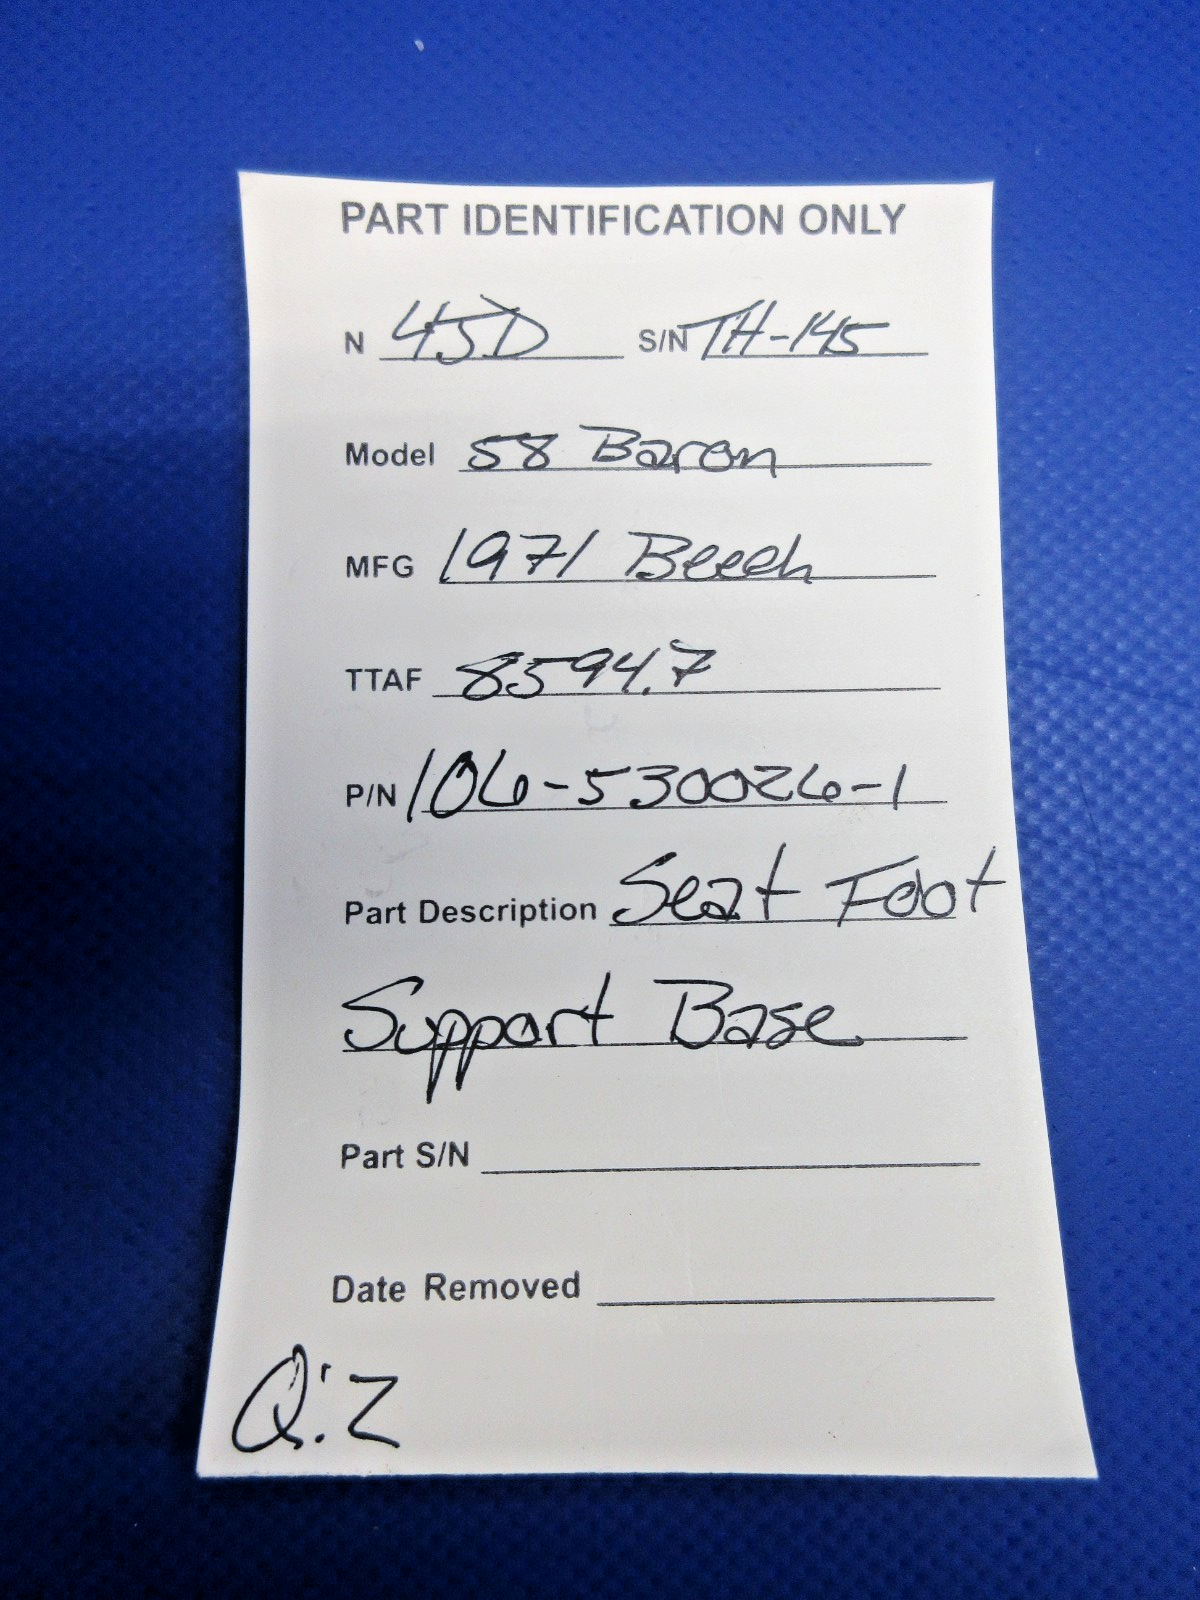 PART IDENTIFICATION ONLY
N 45D S/N TH-145
Model 58 Baron
MFG 1971 Beech
TTAF 8594.7
P/N 106-530026-1
Part Description Seat Foot
Support Base
Part S/N
Date Removed
Q:2